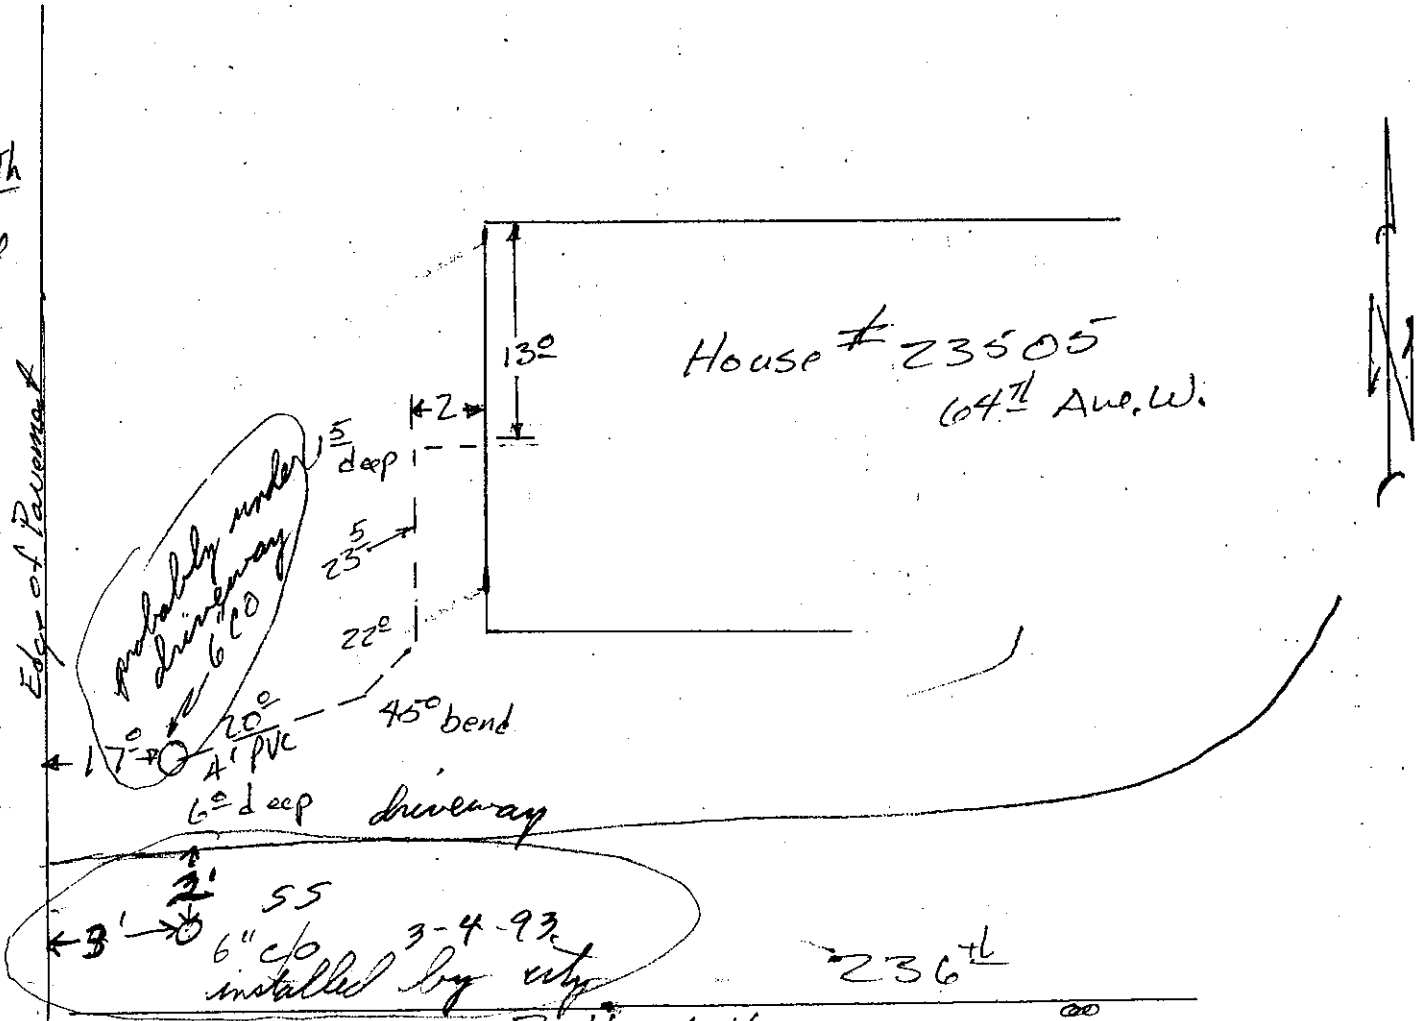 Th
Edge of Pavement
House # 23505
64th Ave. W.
13º
2
5
deep
23 5
22º
45º bend
probably under
driveway
6" CO
17º
20º
4' PVC
6º deep
driveway
2'
3'
SS
6" c/o 3-4-93
installed by city
236th
N